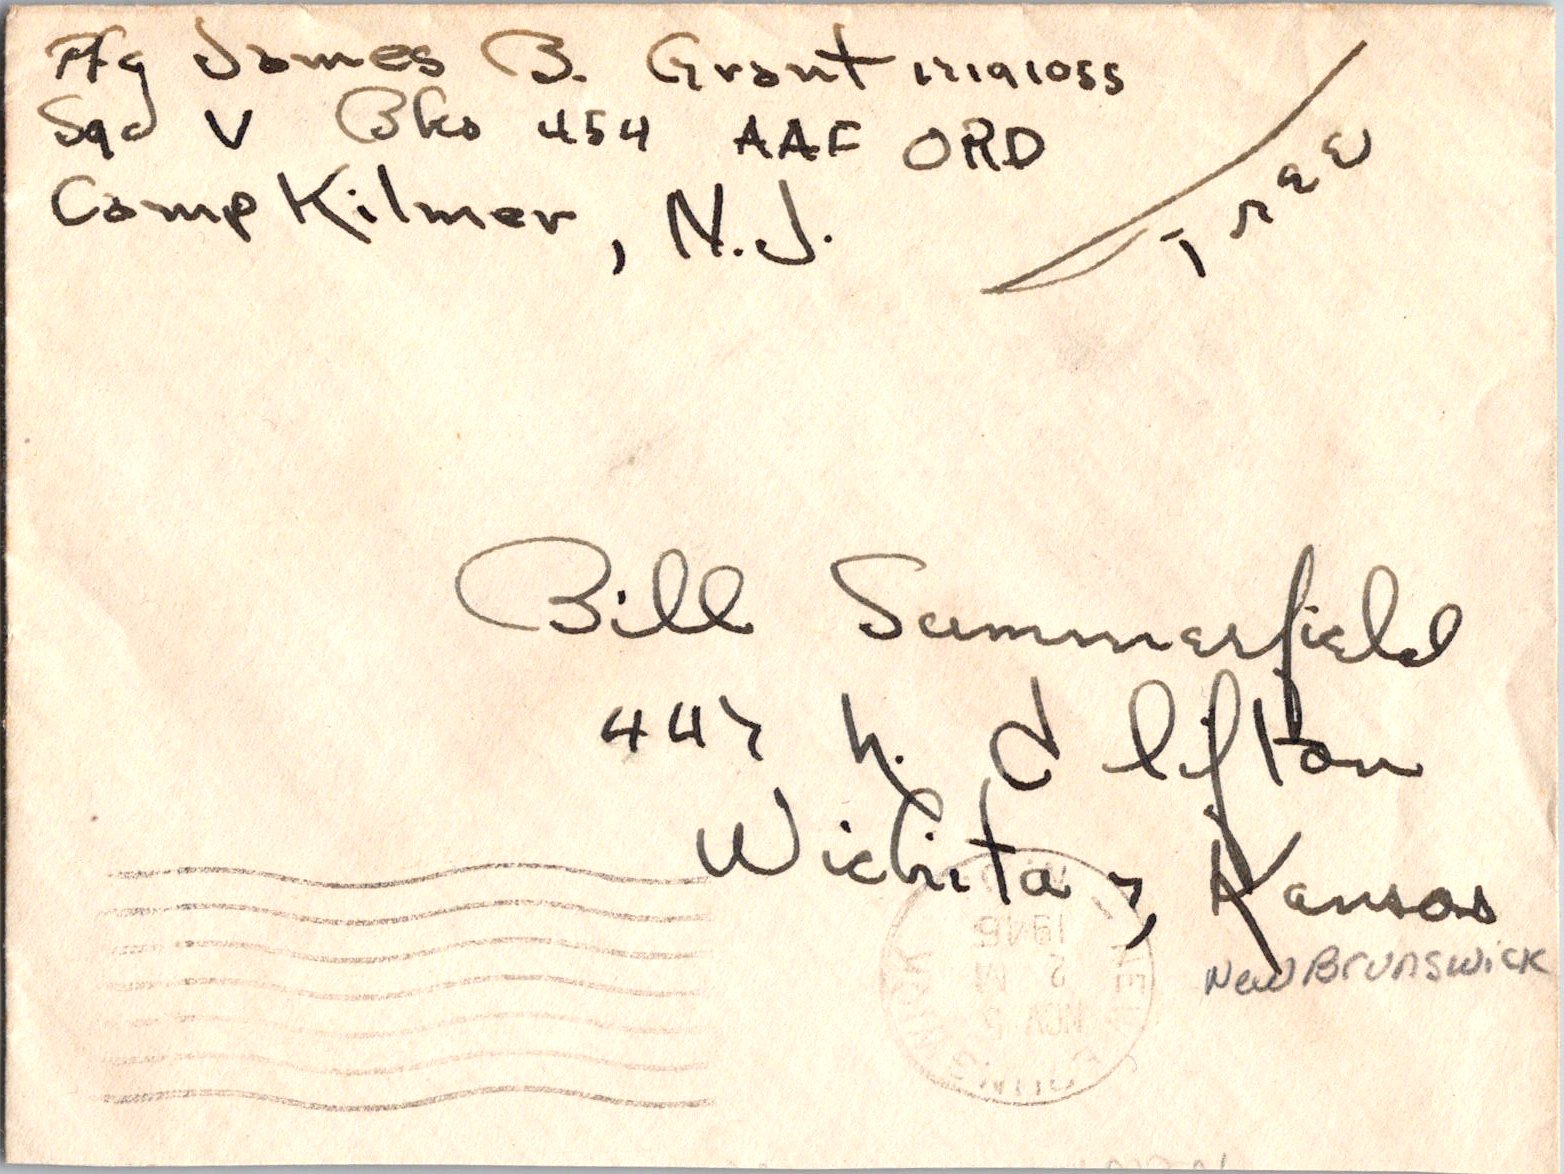 Pfc James B. Grant 17191055
Sqd V Bks 454 AAF ORD
Camp Kilmer, N.J.
Free
Bill Summerfield
447 N. Clifton
Wichita, Kansas
New Brunswick
NEW BRUNSWICK
NOV 2
2 M
1946
N.J.